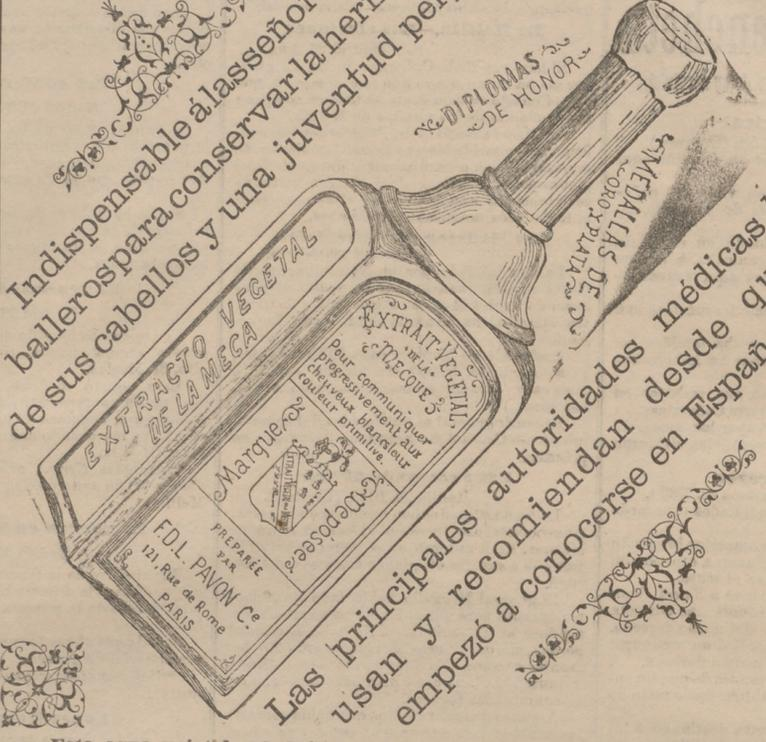 Indispensable á lasseñor
ballerospara conservar la her
de sus cabellos y una juventud per
DIPLOMAS
DE HONOR
MEDALLAS DE
ORO Y PLATA
EXTRACTO VEGETAL
DE LA MECA
EXTRAIT-VEGETAL
DE LA
MECQUE
Pour communiquer
progressivement aux
cheuveux blancs leur
couleur primitive.
Marque
Deposée
PREPARÉE
PAR
F.D.L. PAVON Cᵉ
121, Rue de Rome
PARIS
Las principales autoridades médicas
usan y recomiendan desde qu
empezó á conocerse en Españ